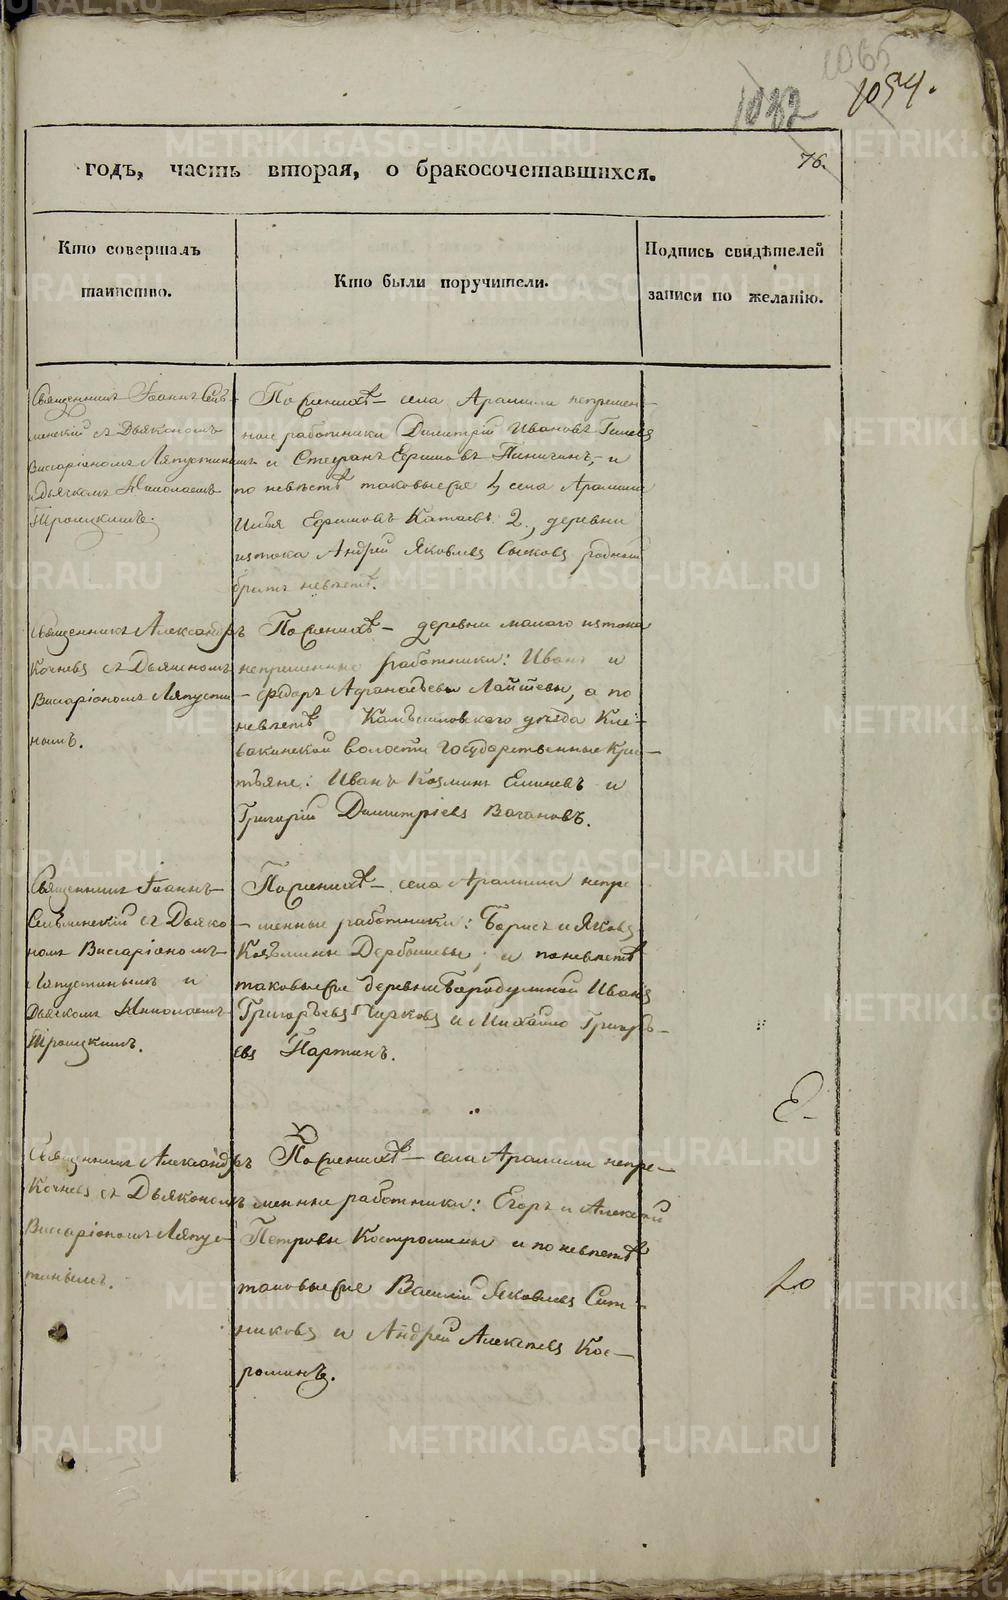 1065
1082
1054.
76.
годъ, часть вторая, о бракосочетавшихся.
Кто совершалъ
таинство.
Кто были поручители.
Подпись свидѣтелей
записи по желанію.
Священникъ Іоаннъ Сел-
менскій съ Дьякономъ
Висаріономъ Ляпустинымъ
и Дьячкомъ Николаемъ
Троицкимъ.
По женихѣ — села Арамили непремен-
ные работники Димитрій Ивановъ
и Стефанъ Ефимовъ и
по невѣстѣ таковые же 1, села Арамили
Илья Ефимовъ Катаевъ 2, деревни
истока Андрей Яковлевъ Сысковъ родной
братъ невѣсты.
Священникъ Александръ
Кочневъ съ Дьякономъ
Висаріономъ Ляпусти-
нымъ.
По женихѣ — деревни малаго истока
непременные работники: Иванъ и
Федоръ Афанасьевы Лаптевы, а по
невѣстѣ Камышловскаго уѣзда Кле-
вакинской волости Государственные Кре-
стьяне: Иванъ Козминъ и
Григорій Димитріевъ Вагановъ.
Священникъ Іоаннъ
съ Дьяко-
номъ Висаріономъ
Ляпустинымъ и
Дьячкомъ Николаемъ
Троицкимъ.
По женихѣ — села Арамили непре-
менные работники: Борисъ и Яковъ
Козьмины Дербышевы; и по невѣстѣ
таковые же деревни Бородулиной Иванъ
Григорьевъ Чирковъ и Михайло Григорь-
евъ Партинъ.
Священникъ Александръ
Кочневъ съ Дьякономъ
Висаріономъ Ляпус-
тинымъ.
По женихѣ — села Арамили непре-
менные работники: Егоръ и Алексѣй
Петровы Костромины и по невѣстѣ
таковые же Василій Яковлевъ Сит-
никовъ и Андрей Алексѣевъ Кос-
роминъ.